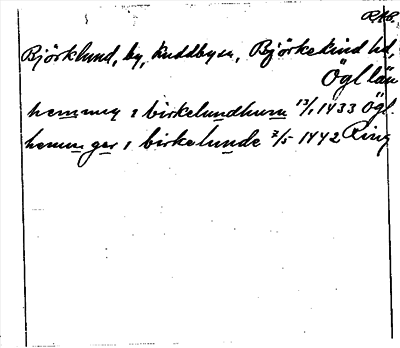 RAP.
Björklund, by, Kuddbysn, Björkekind hd,
Ögl län
hemmig i birkelundhum 13/1 1433 Ögl.
hemmger i birkelunde 7/5 1442 Ring